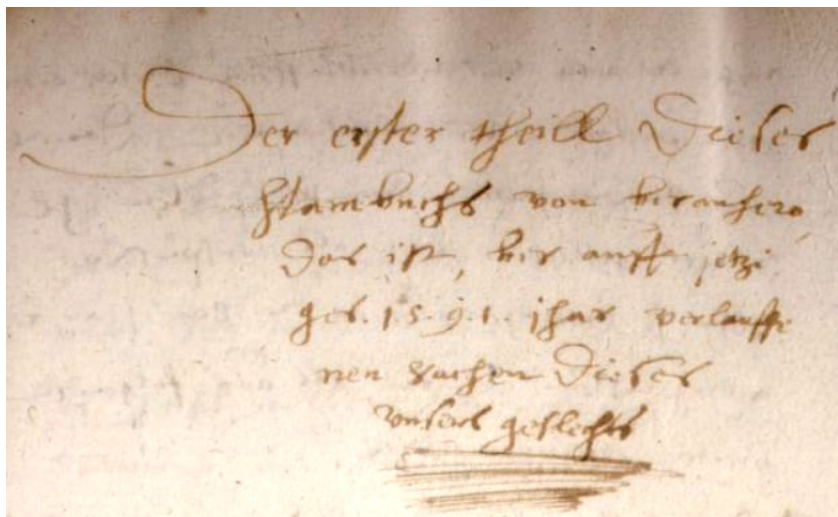 Der erster theill Dieses
stambuchs von beranhero,
das ist, bes auff jetzi
ges .1.5.9.1. jhar verlauffe
nen sachen Dieses
unsers geslechts